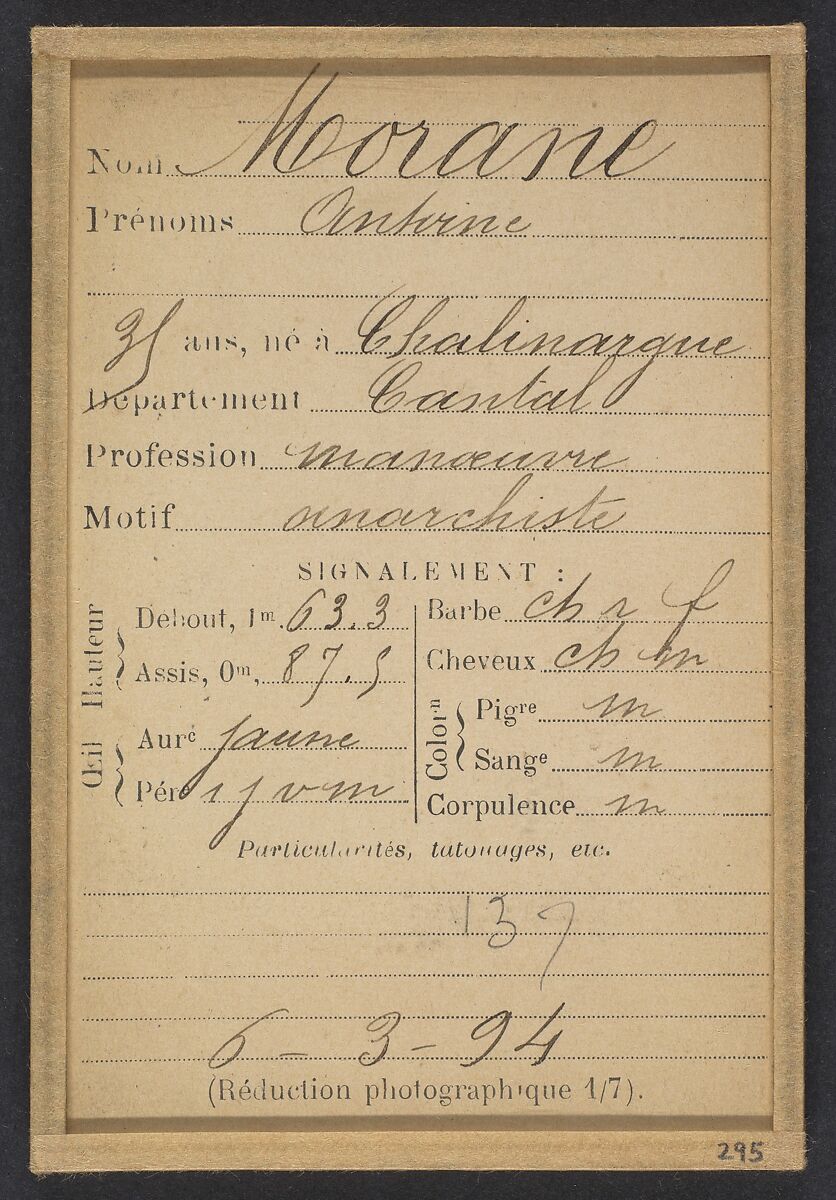 Nom Morane
Prénoms Antoine
35 ans, né à Chalinargue
Département Cantal
Profession manœuvre
Motif anarchiste
SIGNALEMENT :
Hauteur
Debout, 1m. 63.3
Assis, 0m, 87.5
Œil
Aurᵉ jaune
Pérᵉ i j v m
Barbe ch r f
Cheveux ch m
Colorⁿ
Pigʳᵉ m
Sangᵉ m
Corpulence m
Particularités, tatouages, etc.
137
6 - 3 - 94
(Réduction photographique 1/7).
295